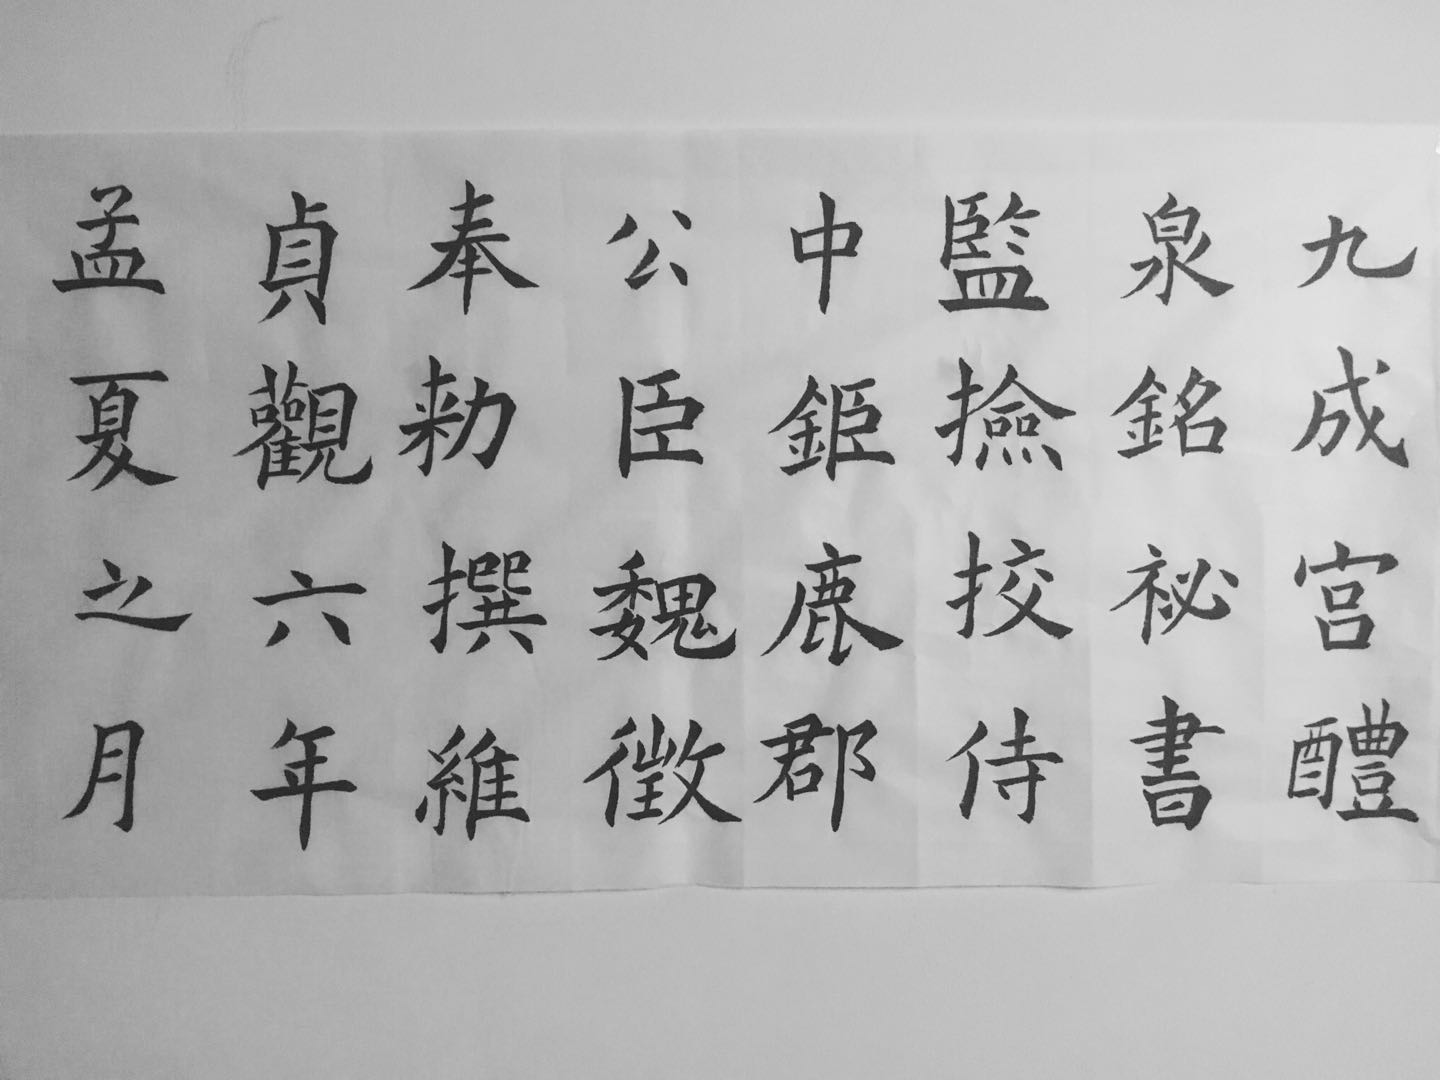 九成宫醴
泉銘祕書
監撿挍侍
中鉅鹿郡
公臣魏徵
奉勑撰維
貞觀六年
孟夏之月